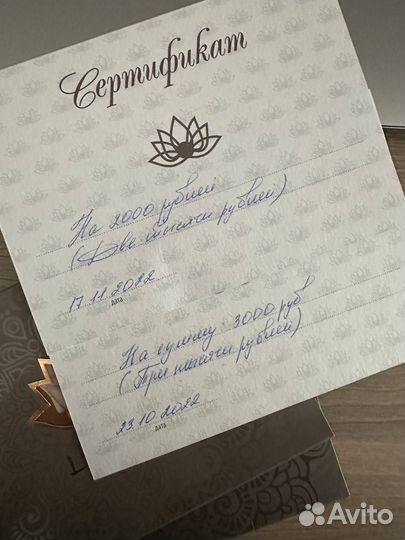 Сертификат
На 2000 рублей
(Две тысячи рублей)
17.11.2022
Дата
На сумму: 3000 руб
(Три тысячи рублей)
23.10.2022
Дата
Avito